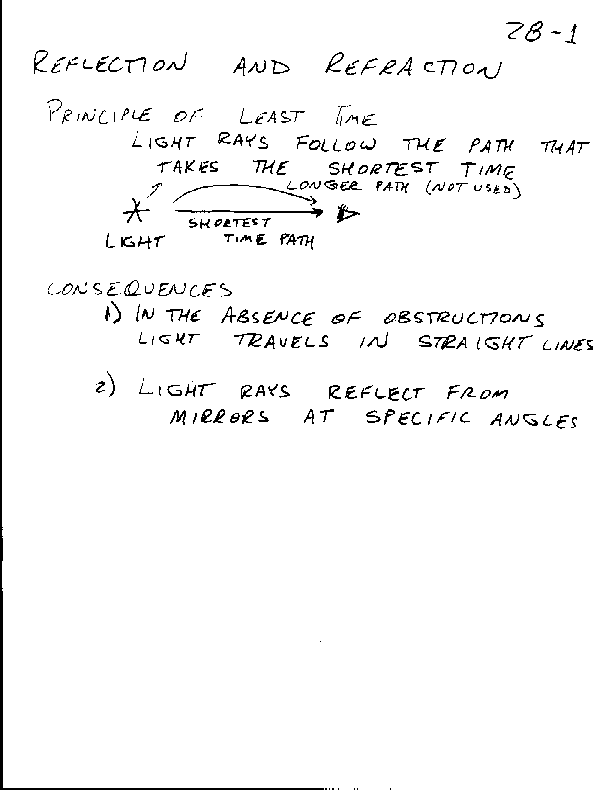 28-1
REFLECTION AND REFRACTION
PRINCIPLE OF LEAST TIME
LIGHT RAYS FOLLOW THE PATH THAT
TAKES THE SHORTEST TIME
LONGER PATH (NOT USED)
SHORTEST
LIGHT TIME PATH
CONSEQUENCES
1) IN THE ABSENCE OF OBSTRUCTIONS
LIGHT TRAVELS IN STRAIGHT LINES
2) LIGHT RAYS REFLECT FROM
MIRRORS AT SPECIFIC ANGLES